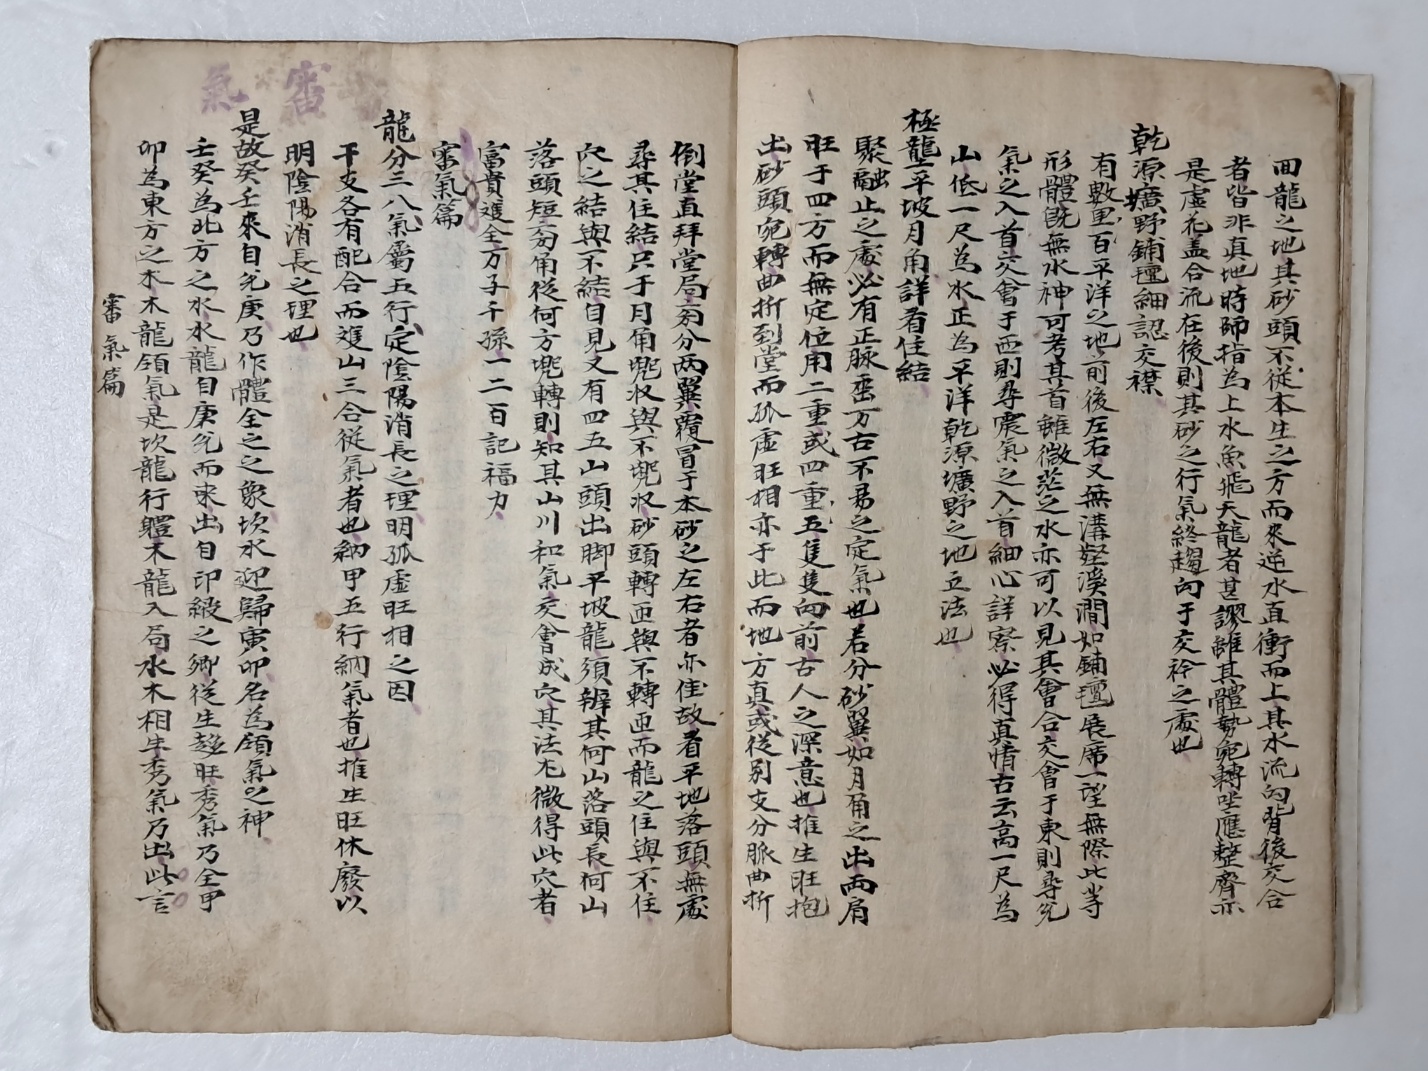 回龍之地其砂頭不從本生之方而來逆水直衝而上其水流向背後交合
者皆非真地時師指為上水魚飛天龍者甚謬雖其體勢宛轉坐應整齊亦
是虛花盖合流在後則其砂之行氣終趨向于交衿之處也
乾源壙野鋪氊細認交襟
有數里百平洋之地前後左右又無溝壑溪澗如鋪氊展席一望無際此等
形體既無水神可考其首雖微茫之水亦可以見其會合交會于東則尋兌
氣之入首交會于西則尋震氣之入首細心詳察必得真情古云高一尺為
山低一尺為水正為平洋乾源壙野之地立法也
極壟平坡月角詳看住結
聚融止之處必有正脉亘万古不易之定氣也若分砂翼如月角之出兩肩
旺于四方而無定位用二重或四重五隻隻向前古人之深意也推生旺抱
出砂頭宛轉曲折到堂而孤虛旺相亦于此而地方真或從别支分脈曲折
倒堂直拜堂局旁分两翼覆冒于本砂之左右者亦佳故看平地落頭無處
尋其住結只于月角兜收與不兜收砂頭轉匝與不轉匝而龍之住與不住
穴之結與不結自見又有四五山頭出脚平坡龍須辨其何山落頭長何山
落頭短旁角從何方兜轉則知其山川和氣交會成穴其法尤微得此穴者
富貴進全万子千孫一二百記福力
審氣篇
龍分三八氣屬五行定陰陽消長之理明孤虛旺相之因
干支各有配合而進山三合從氣者也納甲五行納氣者也推生旺休廢以
明陰陽消長之理也
是故癸壬來自兌庚乃作體全之之象坎水迎歸寅卯名為領氣之神
壬癸為北方之水水龍自庚兌而來出自印綬之卿從生趍旺秀氣乃全甲
卯為東方之木木龍領氣是坎龍行軆木龍入局水木相生秀氣乃出此言
審氣篇
審氣